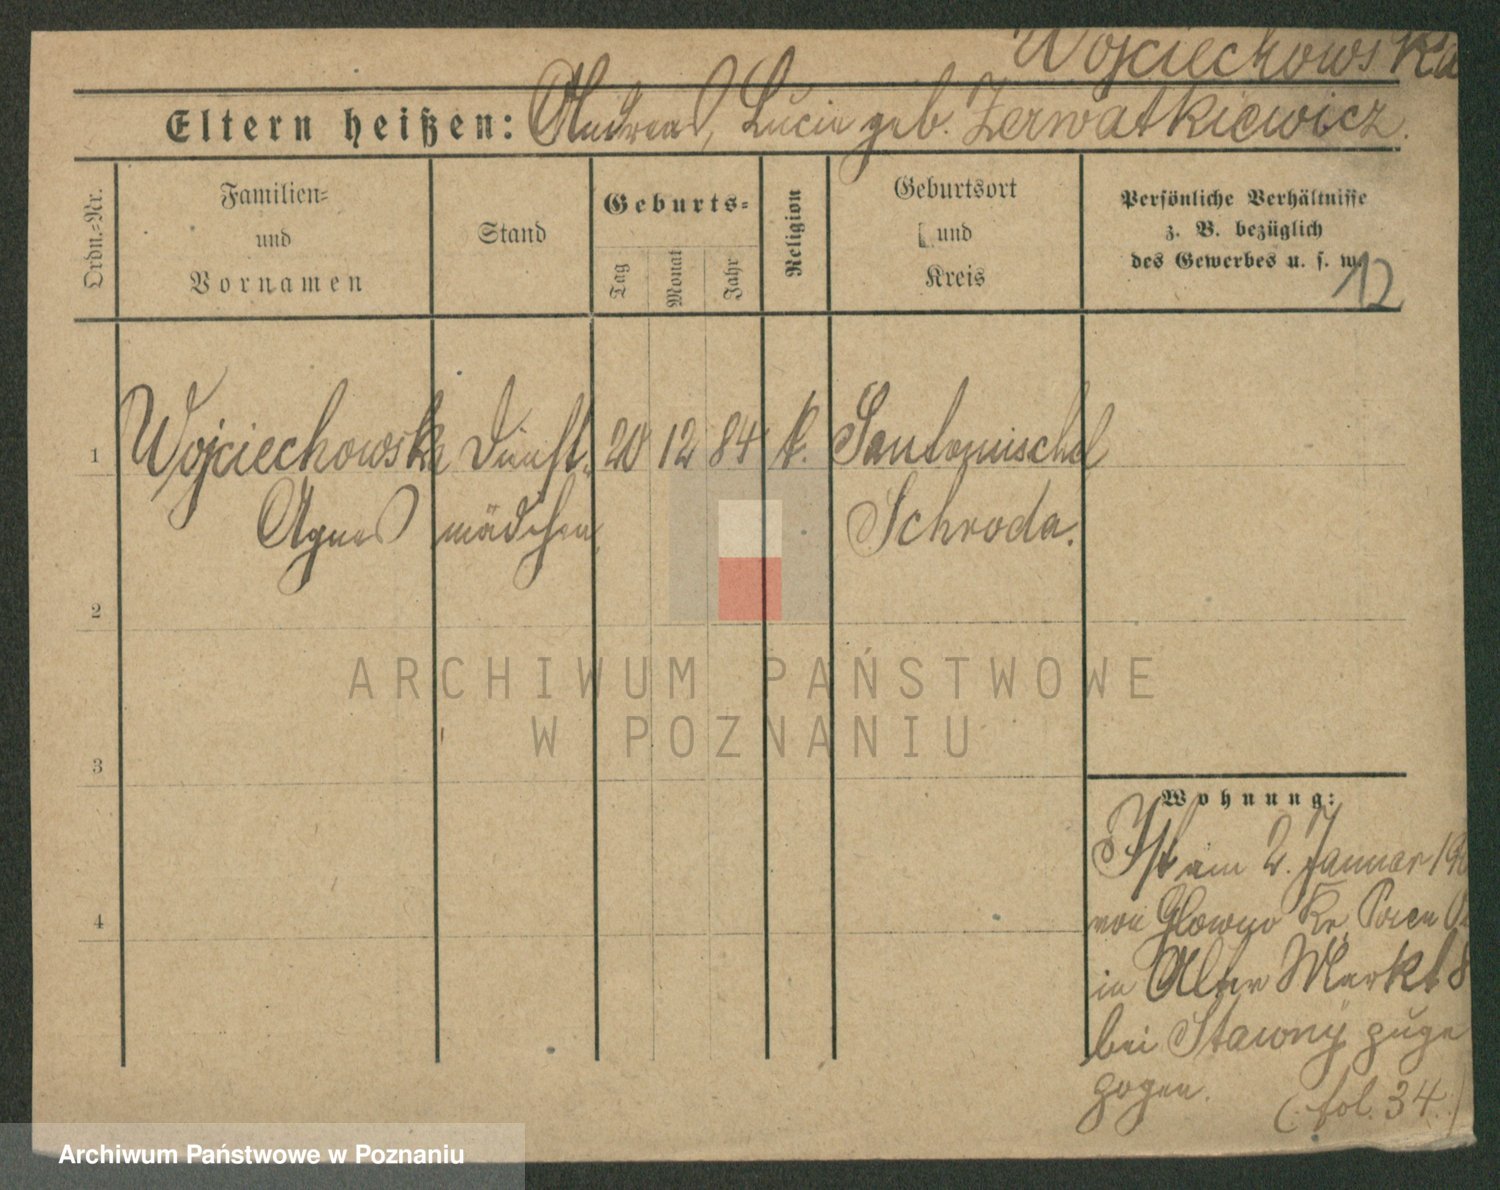 Wojciechowska
Eltern heißen: Andreas, Lucie geb. Zerwatkiewicz.
Ordn.-Nr.
Familien-
und
Vornamen
Stand
Geburts-
Tag
Monat
Jahr
Religion
Geburtsort
und
Kreis
Persönliche Verhältnisse
z. B. bezüglich
des Gewerbes u. s. w.
12
1 Wojciechowska Dienst- 20 12 84 k. Santomischel
Agnes mädchen Schroda.
2
3
4
ARCHIWUM PAŃSTWOWE
W POZNANIU
Wohnung:
Ist am 2. Januar 190
von Glowno Kr. Posen
in Alter Markt 8
bei Stawny zuge
zogen.
(fol. 34.)
Archiwum Państwowe w Poznaniu